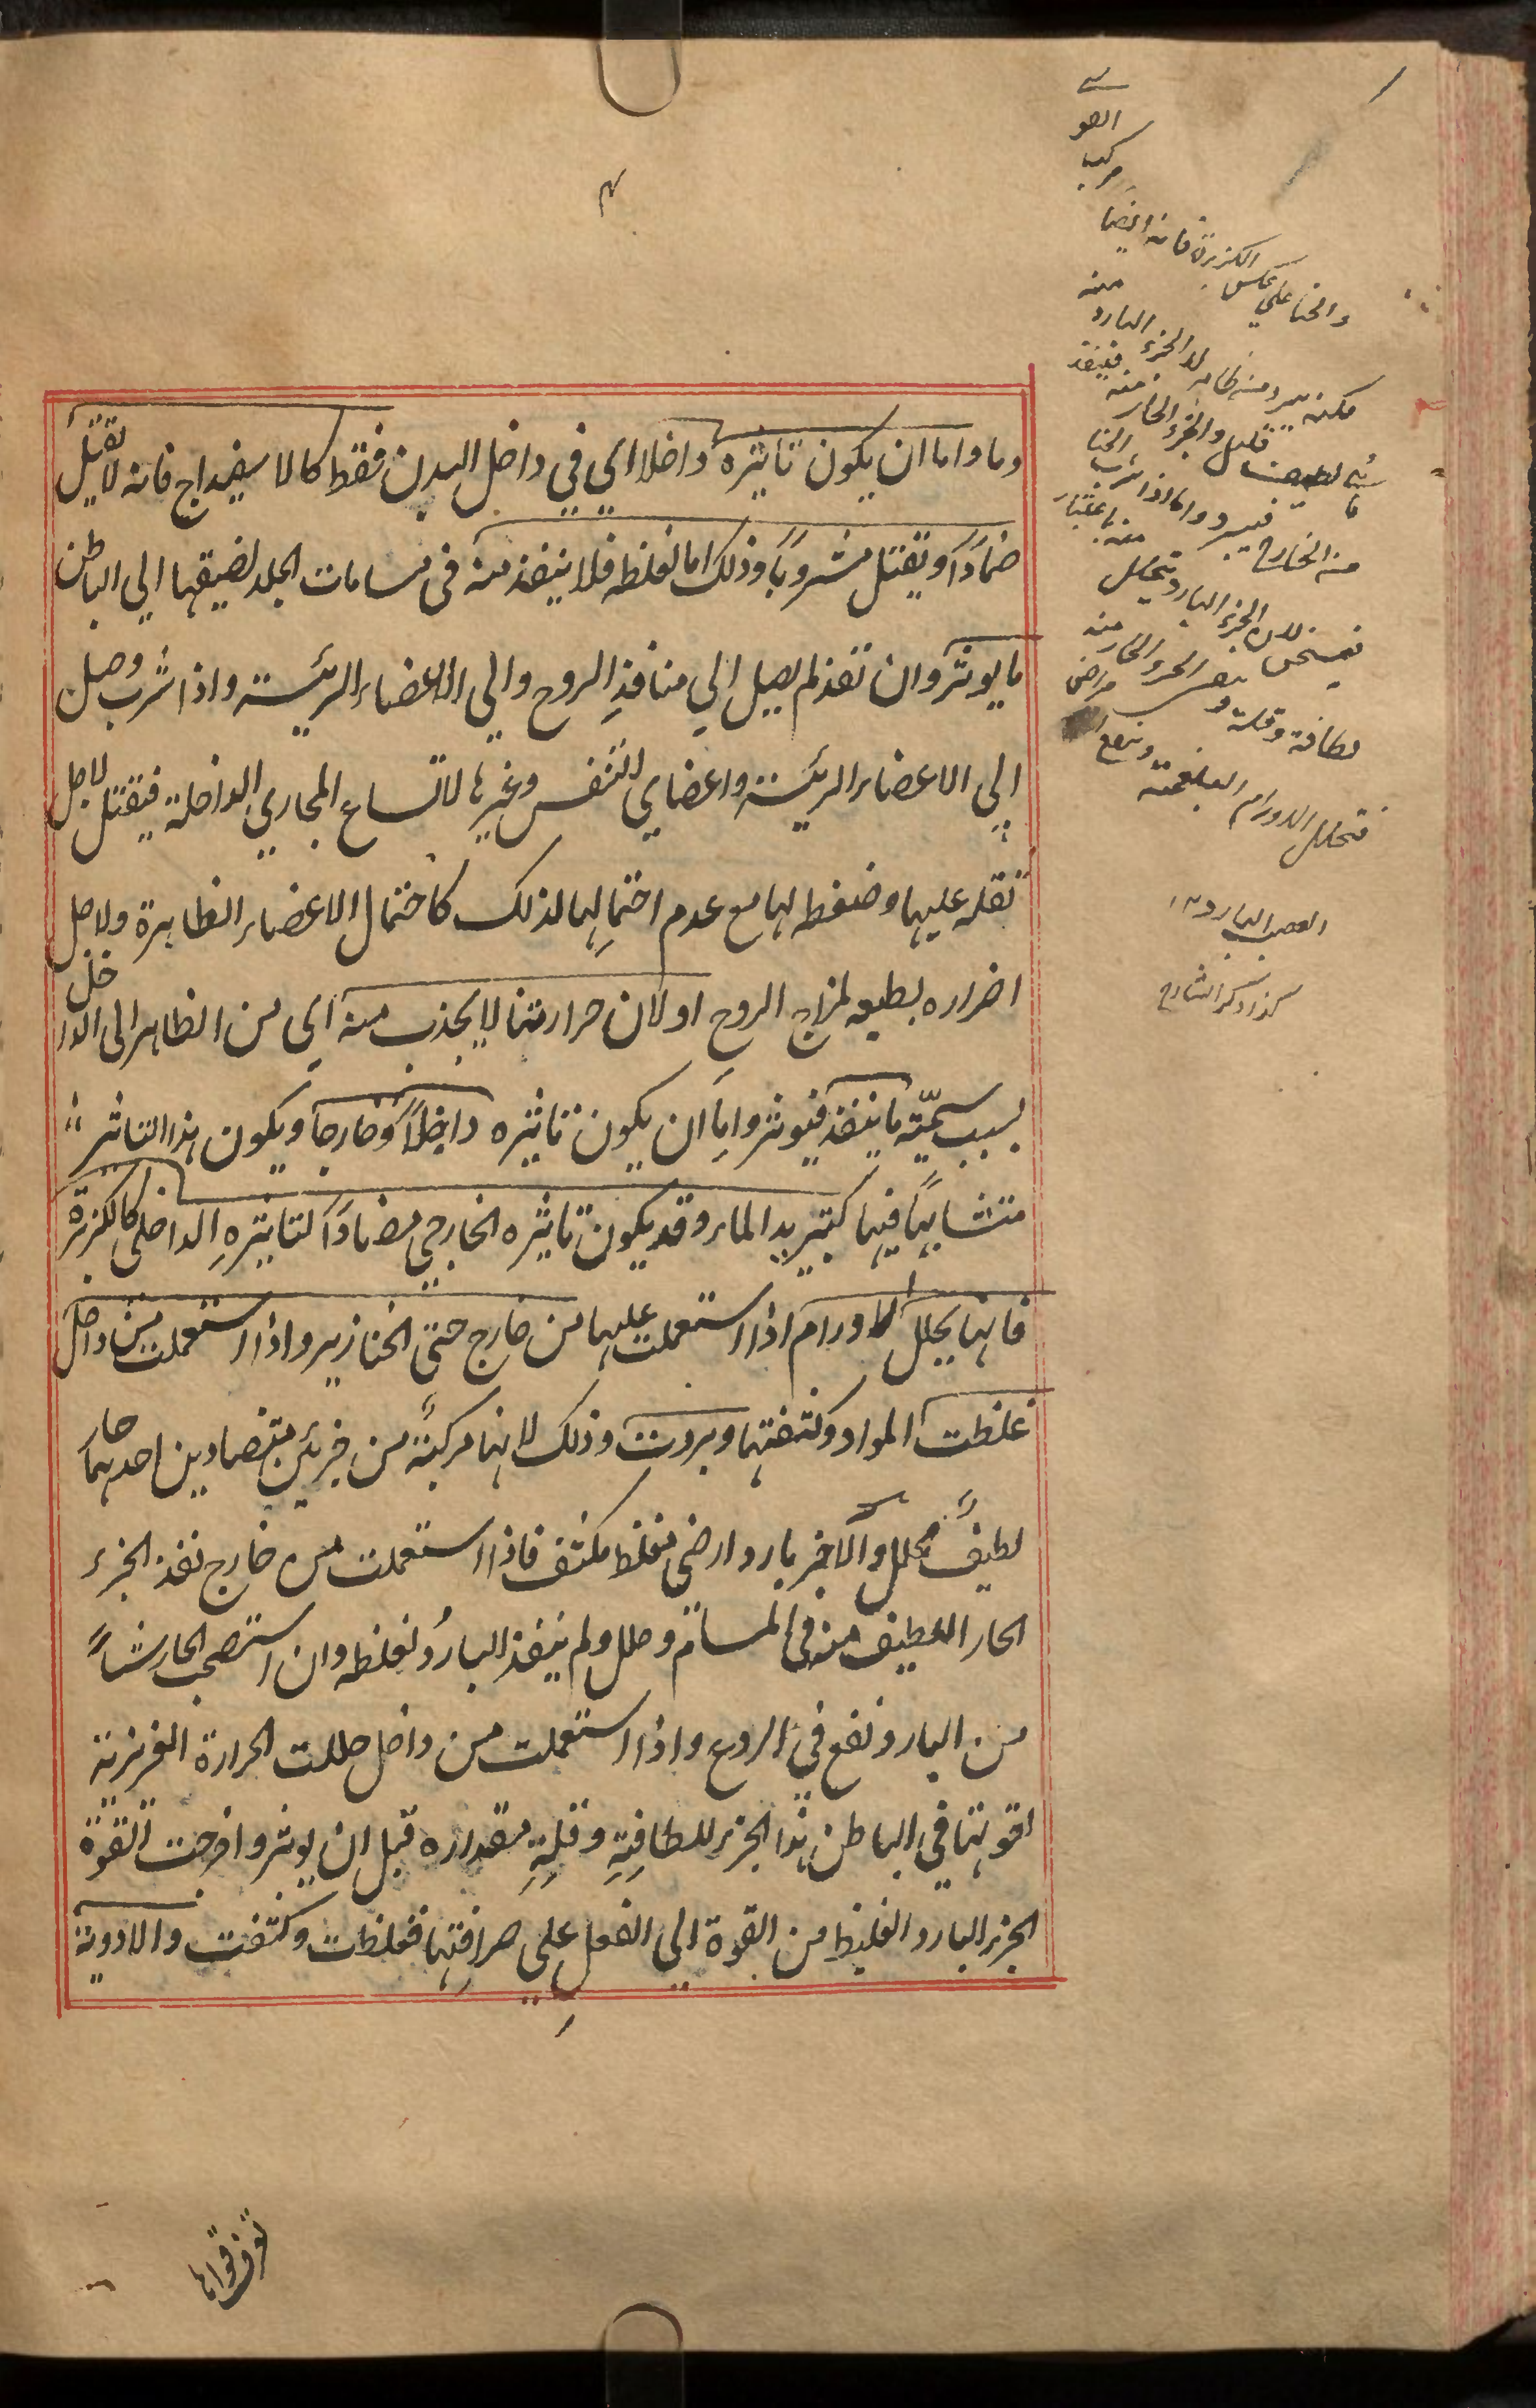 وما واما ان يكون تاثيره داخلا اي في داخل البدن فقط كالاسفيداج فانه لا يقتل
ضماداً ويقتل مشروباً وذلك اما لغلظه فلا ينفذ منه فى مسامات الجلد لضيقها الي الباطن
ما يوثر وان نفذ لم يصل الي منافذ الروح والي الاعضاء الرئيسة واذا شرب وصل
الي الاعضاء الرئيسة واعضاي التنفس وغيرها لاتساع المجاري الداخلة فيقتل لاجل
ثقله عليها وضغطه لها مع عدم احتمالها لذلك كاحتمال الاعضاء الظاهرة ولاجل
اضراره بطبعه لمزاج الروح او لان حرارتنا لا يجذب منه اي من الظاهر الى الداخل
بسبب سميّته ما ينفذ فيوثر واما ان يكون تاثيره داخلاً وخارجاً ويكون هذا التاثير
متشابهاً فيها كتبريد الماء وقد يكون تاثيره الخارجي مضاداً لتاثيره الداخلى كالكزبرة
فانها يحلل الاورام اذا استعملت عليها من خارج حتى الخنازير واذا استعملت من داخل
غلظت المواد وكثفتها وبردت وذلك لانها مركبة من جزئين متضادين احدهما حار
لطيف محلل والآخر بارد ارضى مغلظ مكثف فاذا استعملت من خارج نفذ الجزء
الحار اللطيف منه فى المسام وحلل ولم ينفذ البارد لغلظه وان استصحب الحار شيأً
من البارد نفع في الردع واذا استعملت من داخل حللت الحرارة الغريزية
لقوتها في الباطن هذا الجزء للطافته وقلة مقداره قبل ان يوثر واخرجت القوة
الجزء البارد الغليظ من القوة الي الفعل علي صرافتها فغلظت وكثفت والادوية
والحنا علي عكس الكزبرة فانه ايضا
مركب
منه
فتحلل الاورام البلغمية وينفع
العصب البارد ١٢
كذا ذكر الشارح
تعرف قواها